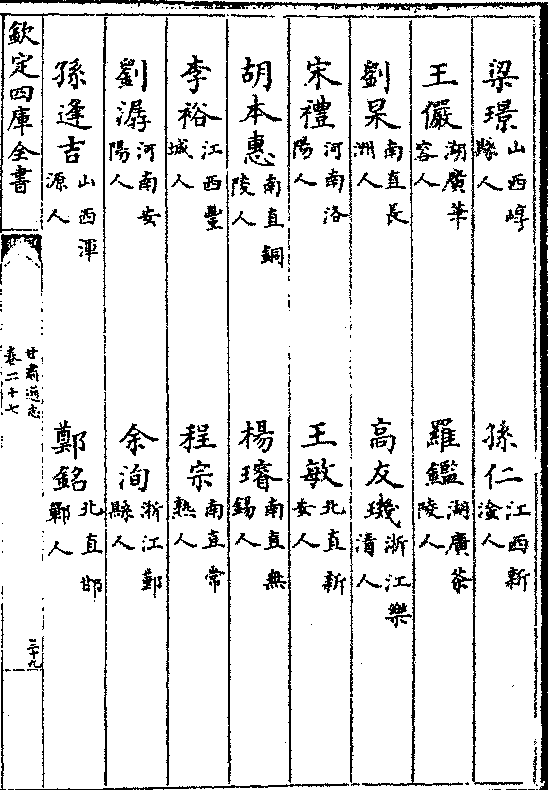 梁璟山西崞縣人　孫仁江西新淦人
王儼湖廣華容人　羅鑑湖廣茶陵人
劉杲南直長洲人　高友璣浙江樂清人
宋禮河南洛陽人　王敏北直新安人
胡本惠南直銅陵人　楊璿南直無錫人
李裕江西豐城人　程宗南直常熟人
劉潺河南安陽人　余洵浙江鄞縣人
孫逢吉山西渾源人　鄭銘北直邯鄲人
欽定四庫全書　甘肅通志卷二十七　三十九